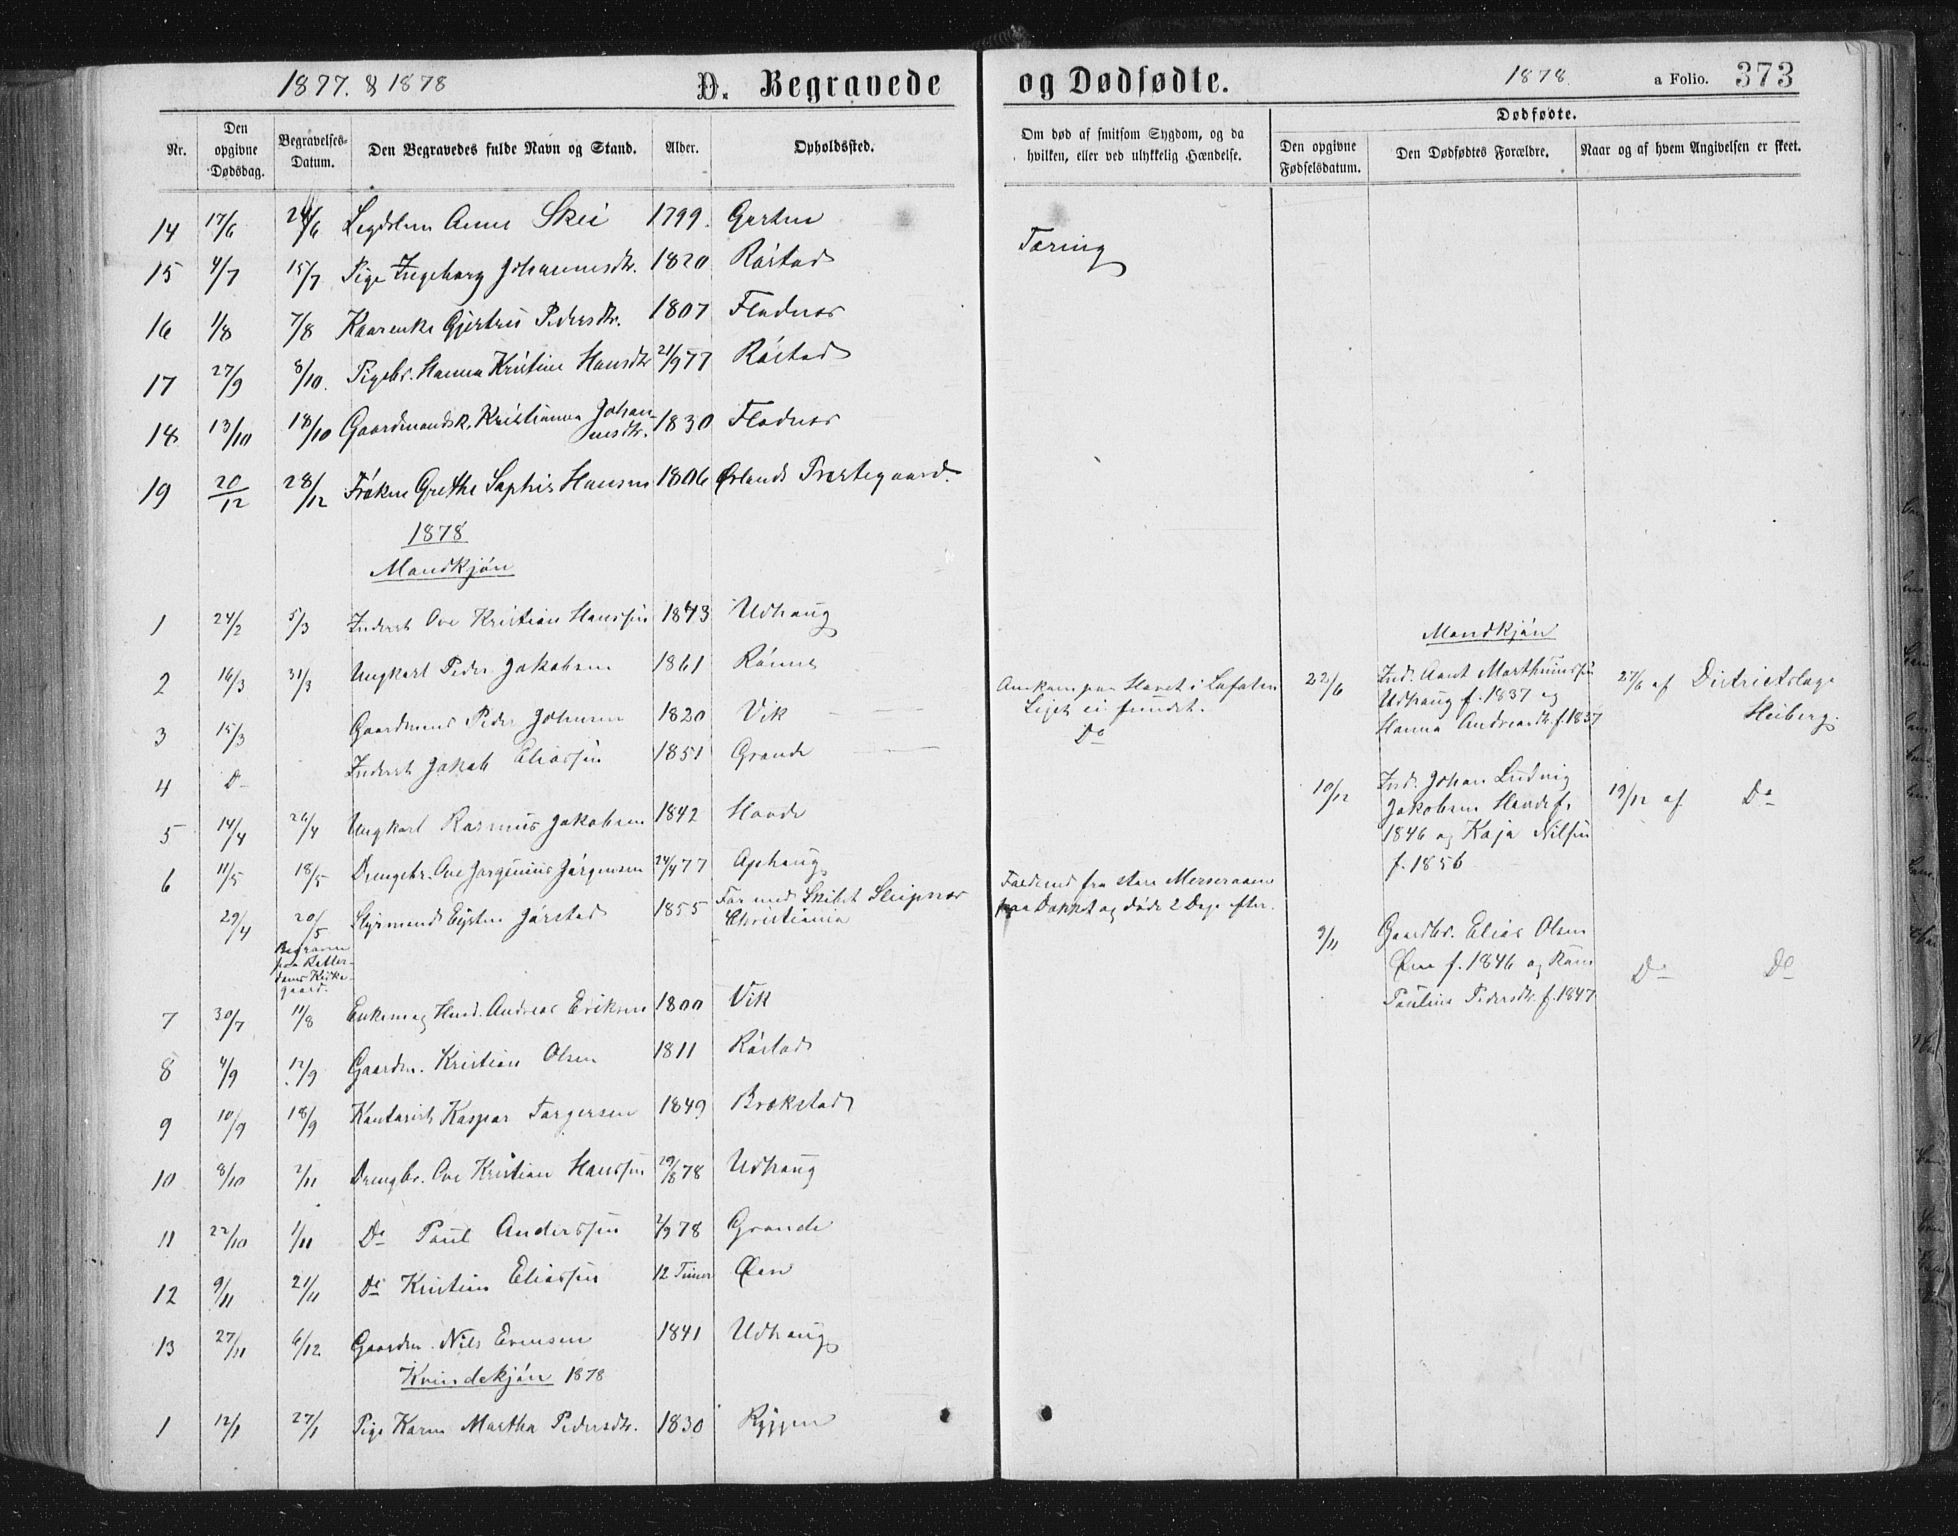 1877. & 1878
D. Begravede og Dødfødte.
1878
a Folio. 373
Nr.
Den opgivne Dødsdag.
Begravelses-Datum.
Den Begravedes fulde Navn og Stand.
Alder.
Opholdssted.
Om død af smitsom Sygdom, og da hvilken, eller ved ulykkelig Hændelse.
Dødfødte.
Den opgivne Fødselsdatum.
Den Dødfødtes Forældre.
Naar og af hvem Angivelsen er skeet.
14 17/6 24/6 Anne Skei 1799. Garten
15 4/7 15/7 Pige Ingeborg Johannesdtr. 1820 Røstad Tæring
16 1/8 7/8 Kaarenke Gjertru Pedersdtr. 1807 Fladnes
17 27/9 8/10. Pigebr. Hanna Kristine Hansdtr 21/9 77 Røstad
18 13/10 18/10 Gaardmandsk. Kristianna Johannesdtr. 1830 Fladnes
19 20/12 28/12 Frøken Grethe Sophie Hansen 1806 Ørlands Præstegaard.
1878
Mandkjøn
1 24/2 5/3 Inderst Ove Kristian Hanssen 1843 Udhaug
2 16/3 31/3 Ungkarl Peder Jakobsen 1861 Rønne
3 15/3 Gaardmand Peder Johnsen 1820 Vik
Omkom paa Havet i Lofoten
Liget ei fundet.
4 Do Inderst Jakob Eliassen 1851 Grande
Do
5 14/4 26/4 Ungkarl Rasmus Jakobsen 1842 Hovde
6 11/5 18/5 Drengebr. Ove Jørgenius Jørgensen 24/4 77 Ophaug
29/4 20/5 Styrmand Eysten Jørstad 1855 Far med Skibet Sleipner
Christiania
Begraven
paa Rotter-
dams Kirke-
gaard.
Faldt ned fra store Mersraaen
paa Dækket og døde 2 Dage efter.
7 30/7 11/8 Enkem. og Husd. Andreas Eriksen 1800 Vik
8 4/9 12/9 Gaardm. Kristian Olsen 1811 Røstad
9 10/9 18/9 Kontorist Kaspar Torgersen 1849 Brekstad
10 8/10 2/11 Drengbr. Ove Kristian Hanssen 29/8 78 Udhaug
11 22/10 1/11 Do Paul Anderssen 2/9 78 Grande
12 9/11 21/11 Do Kristian Eliassen 12 Timer Øien
13 27/11 6/12 Gaardm. Nils Evensen 1841 Udhaug
Kvindekjøn 1878
1 12/1 27/1 Pige Karen Martha Pedersdtr. 1830 Ryggen
Mandkjøn
22/6 Ind. Arnt Marthinussen
Udhaug f. 1837 og
Hanna Andreasdtr. f. 1837
27/6 af Districtslæge
Heiberg.
10/12 Ind. Johan Ludvig
Jakobsen Hovde f.
1846 og Kaja Nilsen
f. 1856
19/12 af Do
9/11 Gaardbr. Elias Olsen
Øien f. 1846 og Kone
Pauline Pedersdtr. f. 1847
Do Do